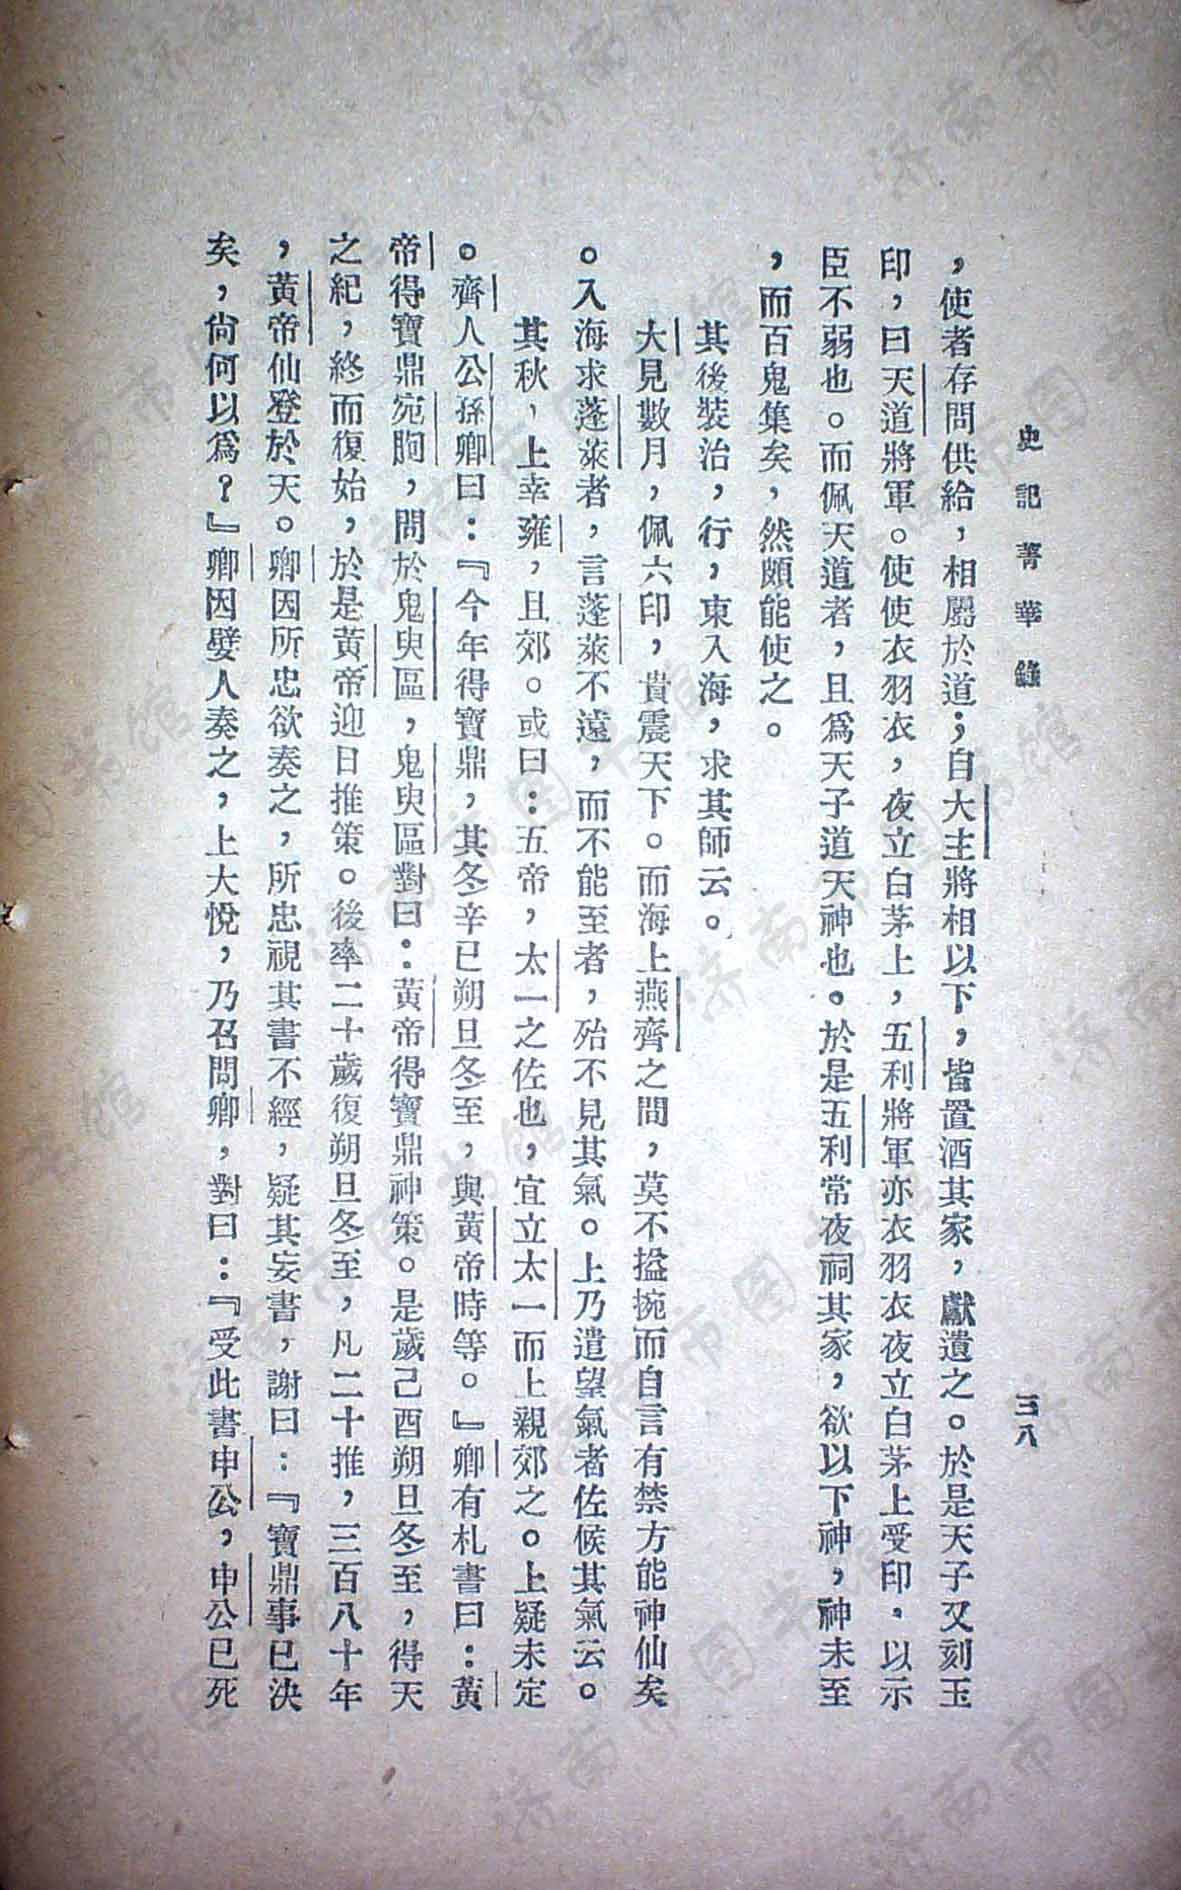 史記菁華錄
三八
，使者存問供給，相屬於道；自大主將相以下，皆置酒其家，獻遺之。於是天子又刻玉
印，曰天道將軍。使使衣羽衣，夜立白茅上，五利將軍亦衣羽衣夜立白茅上受印。以示
臣不弱也。而佩天道者，且爲天子道天神也。於是五利常夜祠其家，欲以下神，神未至
，而百鬼集矣，然頗能使之。
其後裝治，行，東入海，求其師云。
大見數月，佩六印，貴震天下。而海上燕齊之間，莫不搤捥而自言有禁方能神仙矣
。入海求蓬萊者，言蓬萊不遠，而不能至者，殆不見其氣。上乃遣望氣者佐候其氣云。
其秋，上幸雍，且郊。或曰：五帝，太一之佐也，宜立太一而上親郊之。上疑未定
。齊人公孫卿曰：『今年得寶鼎，其冬辛巳朔旦冬至，與黃帝時等。』卿有札書曰：黃
帝得寶鼎宛朐，問於鬼臾區，鬼臾區對曰：黃帝得寶鼎神策。是歲己酉朔旦冬至，得天
之紀，終而復始，於是黃帝迎日推策。後率二十歲復朔旦冬至，凡二十推，三百八十年
，黃帝仙登於天。卿因所忠欲奏之，所忠視其書不經，疑其妄書，謝曰：『寶鼎事已決
矣，尙何以爲？』卿因嬖人奏之，上大悅，乃召問卿，對曰：『受此書申公，申公已死
济南市图书馆